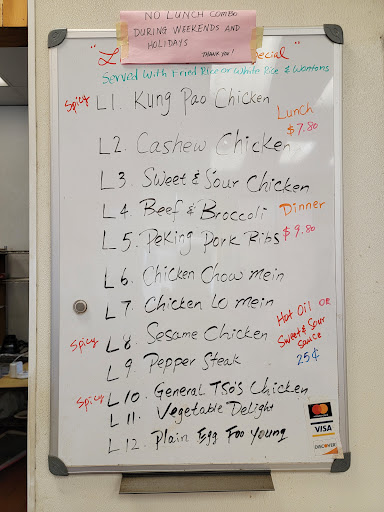 NO LUNCH COMBO
DURING WEEKENDS AND
HOLIDAYS
THANK YOU!
Served With Fried Rice or White Rice & Wontons
Spicy L1. Kung Pao Chicken
Lunch
$7.80
L2. Cashew Chicken
L3. Sweet & Sour Chicken
L4. Beef & Broccoli
Dinner
$9.80
L5. Peking Pork Ribs
L6. Chicken Chow mein
L7. Chicken Lo mein
Hot Oil OR
Sweet & Sour
Sauce
25¢
Spicy L8. Sesame Chicken
L9. Pepper Steak
Spicy L10. General TSO'S Chicken
L11. Vegetable Delight
L12. Plain Egg Foo Young
VISA
DISCOVER